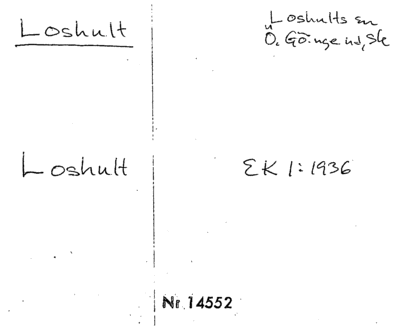 Loshult
Loshults sn
Ö. Göinge hd, Sk
Loshult
EK 1:1936
Nr 14552